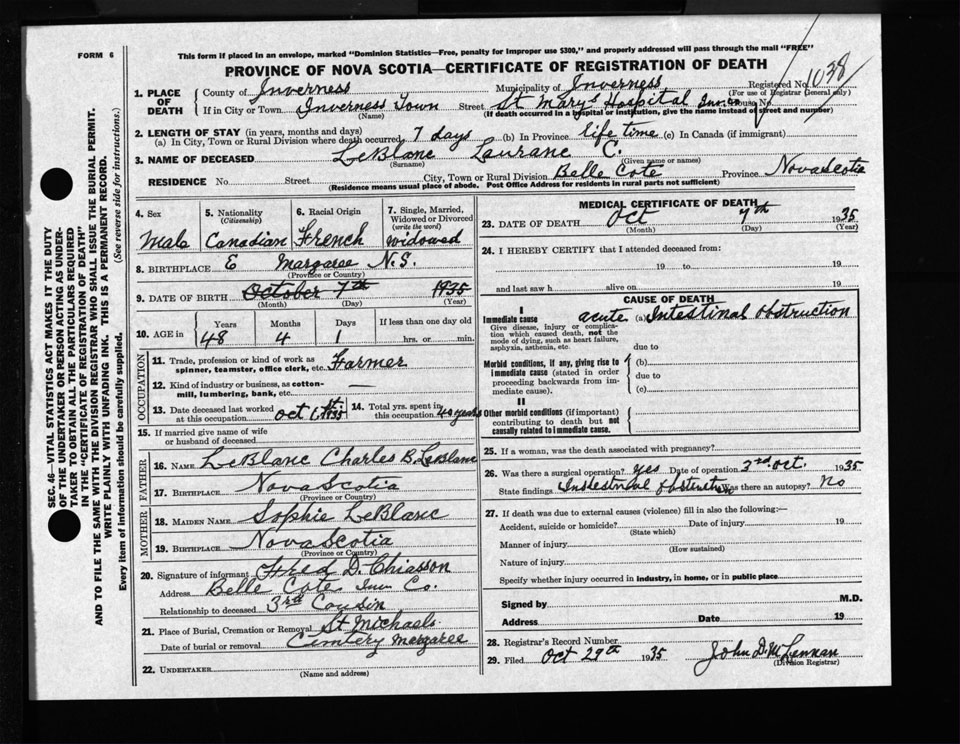 FORM 6
This form if placed in an envelope, marked "Dominion Statistics—Free, penalty for improper use $300," and properly addressed will pass through the mail "FREE"
PROVINCE OF NOVA SCOTIA—CERTIFICATE OF REGISTRATION OF DEATH
1. PLACE OF DEATH County of Inverness Municipality of Inverness Registered No. 1038
(For use of Registrar General only)
If in City or Town Inverness Town Street St Mary's Hospital House No
(Name) (If death occurred in a hospital or institution, give the name instead of street and number)
2. LENGTH OF STAY (in years, months and days)
(a) In City, Town or Rural Division where death occurred 7 days (b) In Province life time (c) In Canada (if immigrant)
3. NAME OF DECEASED LeBlanc Laurane C.
(Surname) (Given name or names)
RESIDENCE No. Street City, Town or Rural Division Belle Cote Province Nova Scotia
(Residence means usual place of abode. Post Office Address for residents in rural parts not sufficient)
4. Sex Male
5. Nationality (Citizenship) Canadian
6. Racial Origin French
7. Single, Married, Widowed or Divorced (write the word) widowed
8. BIRTHPLACE E Margaree N.S.
(Province or Country)
9. DATE OF BIRTH October 7th 1935
(Month) (Day) (Year)
10. AGE in Years 48 Months 4 Days 1 If less than one day old hrs. or min.
OCCUPATION
11. Trade, profession or kind of work as spinner, teamster, office clerk, etc. Farmer
12. Kind of industry or business, as cotton-mill, lumbering, bank, etc. —
13. Date deceased last worked at this occupation Oct 1st 1935
14. Total yrs. spent in this occupation 40 years
15. If married give name of wife or husband of deceased
FATHER
16. NAME LeBlanc Charles B. LeBlanc
17. BIRTHPLACE Nova Scotia
(Province or Country)
MOTHER
18. MAIDEN NAME Sophie LeBlanc
19. BIRTHPLACE Nova Scotia
(Province or Country)
20. Signature of informant Fred D. Chiasson
Address Belle Cote Inv Co.
Relationship to deceased 3rd Cousin
21. Place of Burial, Cremation or Removal St Michaels
Date of burial or removal Cemtery Margaree
22. UNDERTAKER
(Name and address)
MEDICAL CERTIFICATE OF DEATH
23. DATE OF DEATH Oct 7th 1935
(Month) (Day) (Year)
24. I HEREBY CERTIFY that I attended deceased from:
19 to 19
and last saw h alive on 19
CAUSE OF DEATH
I
Immediate cause acute (a) Intestinal obstruction
Give disease, injury or complication which caused death, not the mode of dying, such as heart failure, asphyxia, asthenia, etc.
due to
Morbid conditions, if any, giving rise to immediate cause (stated in order proceeding backwards from immediate cause).
(b)
due to
(c)
II
Other morbid conditions (if important) contributing to death but not causally related to immediate cause.
25. If a woman, was the death associated with pregnancy?
26. Was there a surgical operation? yes Date of operation 3rd Oct. 1935
State findings Indestinal obstruction Was there an autopsy? No
27. If death was due to external causes (violence) fill in also the following:—
Accident, suicide or homicide? Date of injury 19
(State which)
Manner of injury
(How sustained)
Nature of injury
Specify whether injury occurred in industry, in home, or in public place
Signed by M.D.
Address Date 19
28. Registrar's Record Number
29. Filed Oct 29th 1935 John D. McLennan
(Division Registrar)
SEC. 46—VITAL STATISTICS ACT MAKES IT THE DUTY
OF THE UNDERTAKER OR PERSON ACTING AS UNDER-
TAKER TO OBTAIN ALL THE PARTICULARS REQUIRED
IN THE "CERTIFICATE OF REGISTRATION OF DEATH"
AND TO FILE THE SAME WITH THE DIVISION REGISTRAR WHO SHALL ISSUE THE BURIAL PERMIT.
WRITE PLAINLY WITH UNFADING INK. THIS IS A PERMANENT RECORD.
Every item of information should be carefully supplied. (See reverse side for instructions.)